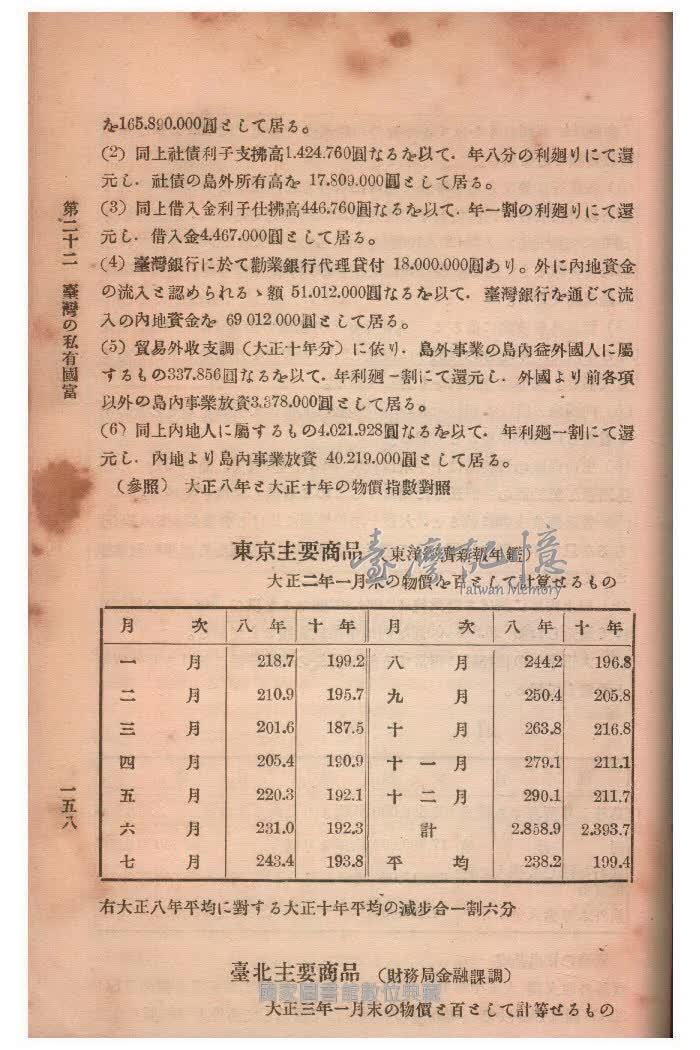 を165.890.000圓として居る。
(2) 同上社債利子支拂高1.424.760圓なるを以て．年八分の利廻りにて還
元し．社債の島外所有高を 17.809.000圓として居る。
(3) 同上借入金利子仕拂高446.760圓なるを以て．年一割の利廻りにて還
元し．借入金4.467.000圓として居る。
(4) 臺灣銀行に於て勸業銀行代理貸付 18.000.000圓あり。外に內地資金
の流入と認められるゝ額 51.012.000圓なるを以て．臺灣銀行を通じて流
入の內地資金を 69 012 000圓として居る。
(5) 貿易外收支調（大正十年分）に依り．島外事業の島內益外國人に屬
するもの337.856圓なるを以て．年利廻一割にて還元し．外國より前各項
以外の島內事業放資3.378.000圓として居る。
(6) 同上內地人に屬するもの4.021.928圓なるを以て．年利廻一割にて還
元し．內地より島內事業放資 40.219.000圓として居る。
（參照） 大正八年と大正十年の物價指數對照
東京主要商品（東洋經濟新報年鑑）
大正二年一月末の物價を百として計算せるもの
月 次 八 年 十 年 月 次 八 年 十 年
一 月 218.7 199.2 八 月 244.2 196.8
二 月 210.9 195.7 九 月 250.4 205.8
三 月 201.6 187.5 十 月 263.8 216.8
四 月 205.4 190.9 十 一 月 279.1 211.1
五 月 220.3 192.1 十 二 月 290.1 211.7
六 月 231.0 192.3 計 2.858.9 2.393.7
七 月 243.4 193.8 平 均 238.2 199.4
右大正八年平均に對する大正十年平均の減步合一割六分
臺北主要商品 （財務局金融課調）
大正三年一月末の物價と百として計等せるもの
第二十二 臺灣の私有國富
一五八
臺灣記憶
Taiwan Memory
國家圖書館數位典藏